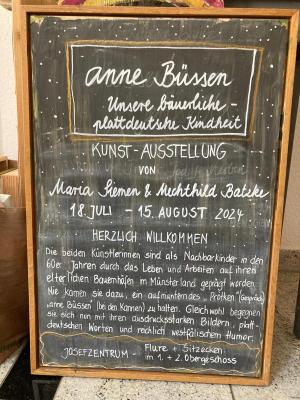 anne Büssen
Unsere bäuerliche -
plattdeutsche Kindheit
KUNST - AUSSTELLUNG
VON
Marta Siemen & Mechthild Batzke
18. JULI - 15. AUGUST 2024
HERZLICH WILLKOMMEN
Die beiden Künstlerinnen sind als Nachbarkinder in den
60er Jahren durch das Leben und Arbeiten auf ihren
elterlichen Bauernhöfen im Münsterland geprägt worden.
Nie kamen sie dazu, ein aufmunterndes „Prötken" (Gespräch)
„anne Büssen" (bei den Kannen) zu halten. Gleichwohl begegnen
sie sich nun mit ihren ausdrucksstarken Bildern, platt-
deutschen Worten und reichlich westfälischem Humor.
JOSEFZENTRUM - Flure + Sitzecken
im 1. + 2. Obergeschoss